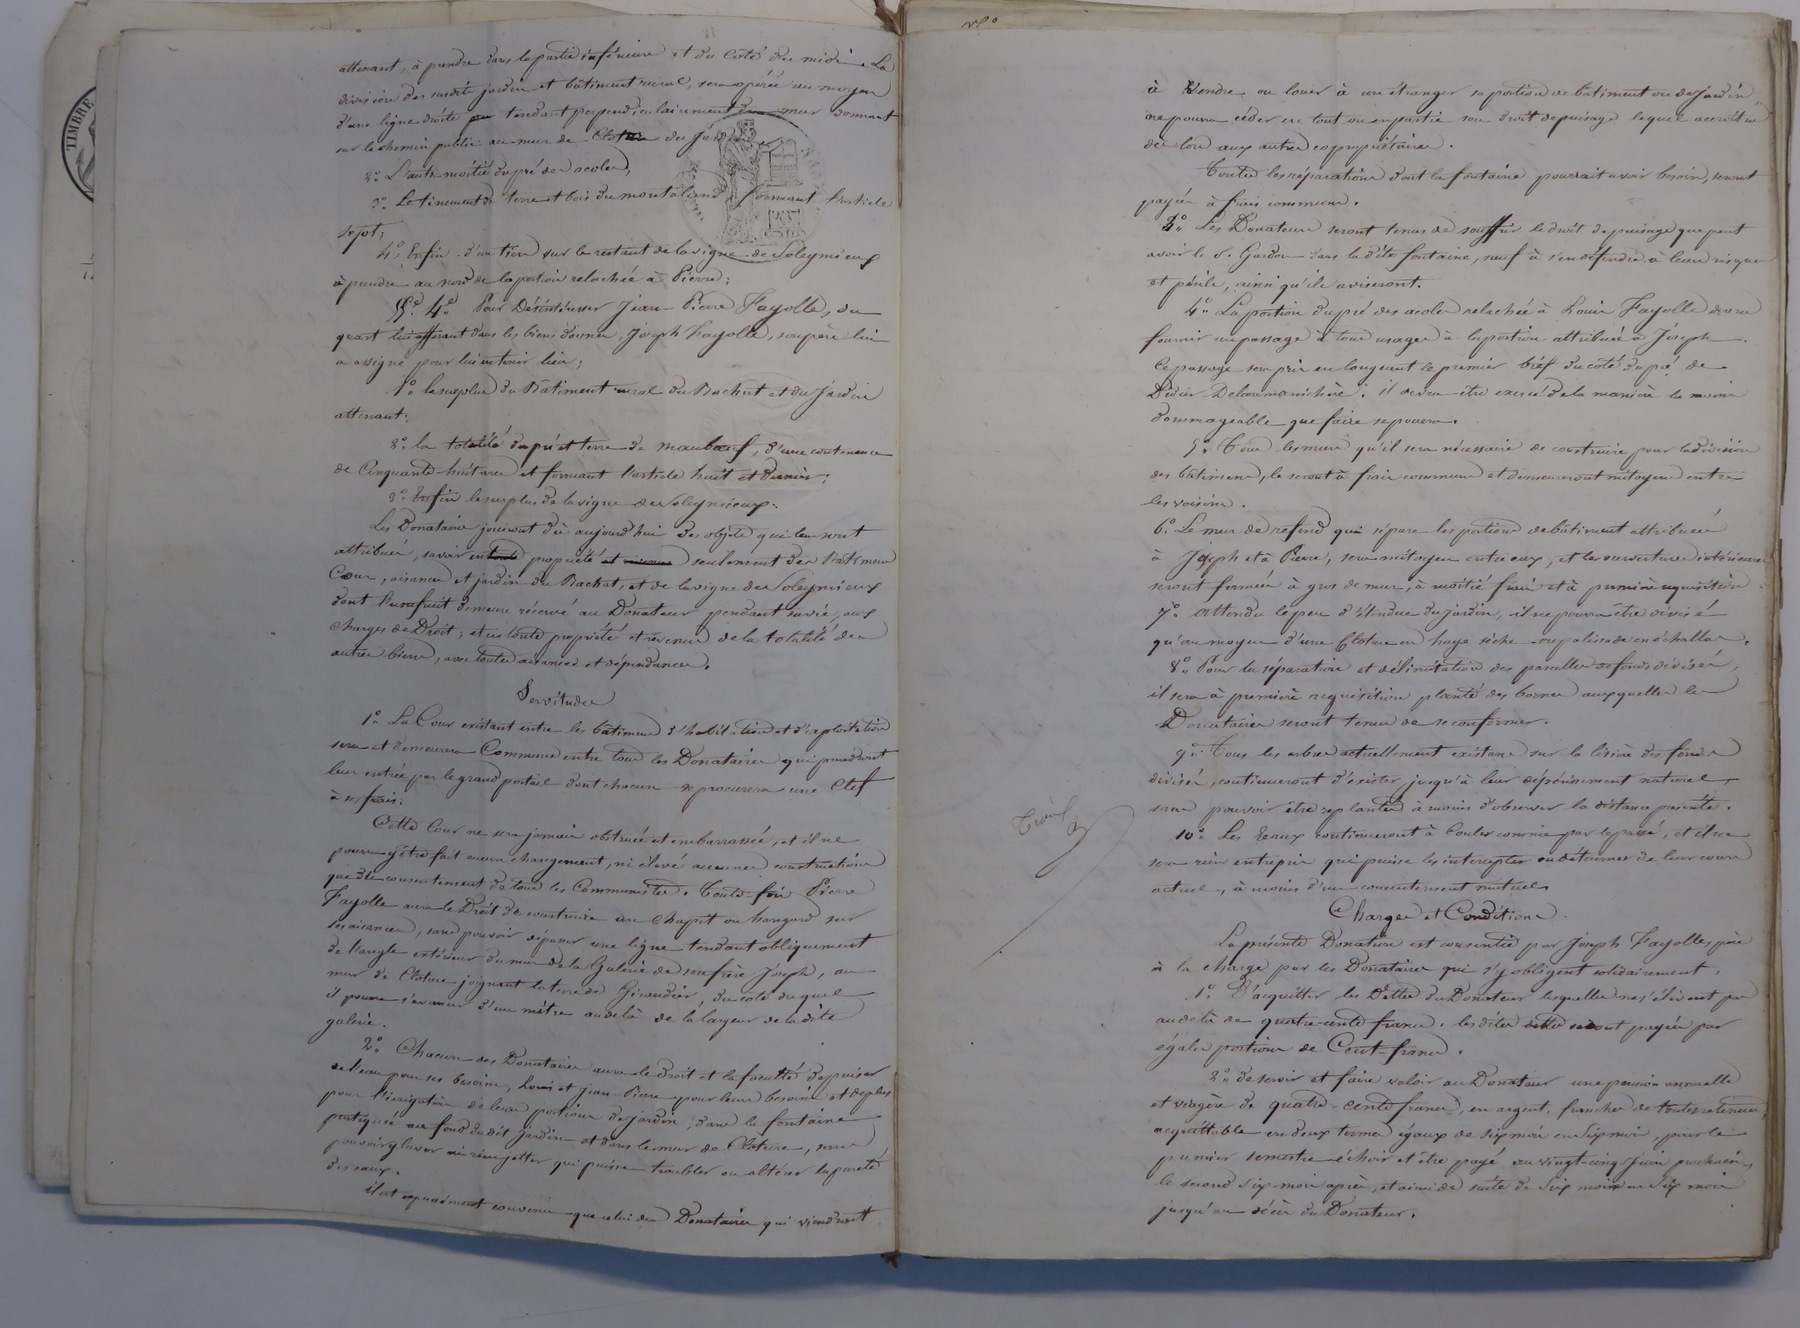 attenant, à prendre dans la partie inférieure et du coté du midi. La
division des susdits jardin et bâtiment rural, sera opérée au moyen
d'une ligne droite tendant perpendiculairement du mur donnant
sur le chemin public au mur de Cloture du Jardin
2.º L'autre moitié du pré des acoles,
3.º Le tinement de terre et bois du montaland formant l'article
sept;
4.º Enfin d'un tiers sur le restant de la vigne de Soleymieux
à prendre au nord de la portion relachée à Pierre;
§. 4.º Pour Désintéresser Jean-Pierre Fayolle, du
quart lui afférant dans les biens donnés, Joseph Fayolle, son père lui
a assigné pour lui en tenir lieu;
1.º le surplus du Bâtiment rural du Bachat et du Jardin
attenant;
2.º la totalité du pré et terre de maubœuf, d'une contenance
de Cinquante-huit ares et formant l'article huit et dernier;
3.º Enfin le surplus de la vigne de Soleymieux.
Les Donataires jouiront dès aujourd'hui des objets qui leur sont
attribués, savoir en toute propriété et revenus seulement des Bâtiments
Cour, aisances et jardin du Bachat, et de la vigne de Soleymieux
dont l'usufruit demeure réservé au Donateur pendant sa vie, aux
Charges de Droit; et en toute propriété et revenus de la totalité des
autres biens, avec toutes aisances et dépendances.
Servitudes
1.º La Cour existant entre les bâtiments d'habitation et d'exploitation
sera et demeurera Commune entre tous les Donataires qui prendront
leur entrée par le grand portail dont chacun se procurera une Clef
à ses frais.
Cette Cour ne sera jamais obstruée et embarrassée, et il ne
pourra y être fait aucun changement, ni élevé aucunes constructions
que du consentement de tous les Communistes. Toute fois Pierre
Fayolle aura le Droit de construire un Chapit ou hangard sur
ses aisances, sans pouvoir dépasser une ligne tendant obliquement
de l'angle extérieur du mur de la Galerie de son frère Joseph, au
mur de Cloture joignant la terre de Giraudier, du coté duquel
il pourra s'avancer d'un mètre audelà de la largeur de la dite
galerie.
2.º Chacun des Donataires aura le droit et la faculté de puiser
de l'eau pour ses besoins, Louis et Jean-Pierre pour leurs besoins et de plus
pour l'irrigation de leurs portions de jardin, dans la fontaine
pratiquée au fond du dit Jardin et dans le mur de Cloture, sans
pouvoir y laver ni rien jetter qui puisse troubler ou altérer la pureté
des eaux.
il est expressément convenu que celui des Donataires qui viendrait
à Vendre ou louer à un étranger sa portion de bâtiment ou de Jardin
ne pourra céder en tout ou en partie son droit de puisage lequel accroîtra
dès lors aux autres copropriétaires.
Toutes les réparations dont la fontaine pourrait avoir besoin, seront
payées à frais communs.
3.º Les Donateurs seront tenus de souffrir le droit de puisage que peut
avoir le S. Gardon dans la dite fontaine, sauf à s'en défendre à leurs risques
et périls, ainsi qu'ils aviseront.
4.º La portion du pré des acoles relachée à Louis Fayolle devra
fournir un passage à tous usages à la portion attribuée à Joseph.
Ce passage sera pris en longeant le premier bief du coté du pré de
Didier Delaremanichère. il devra être exercé de la manière la moins
dommageable que faire se pourra.
5.º Tous les murs qu'il sera nécessaire de construire pour la division
des bâtiments, le seront à frais communs et demeureront mitoyens entre
les voisins.
6.º Le mur de refend qui sépare les portions de bâtiment attribuées
à Joseph et à Pierre, sera mitoyen entre eux, et les ouvertures intérieures
seront fermées à gros de mur, à moitié frais et à première réquisition
7.º Attendu le peu d'étendue du jardin, il ne pourra être divisé
qu'au moyen d'une Cloture en haye sèche ou palissade en échallas.
8.º Pour la séparation et délimitation des parcelles de fonds divisés,
il sera à première réquisition planté des bornes auxquelles les
Donataires seront tenus de se conformer.
9.º Tous les arbres actuellement existans sur la lisière des fonds
divisés, continueront d'exister jusqu'à leur dépérissement naturel,
sans pouvoir être replantés à moins d'observer la distance prescrite.
10.º Les Eaux continueront à Couler comme par le passé, et il ne
sera rien entrepris qui puisse les intercepter ou détourner de leur cours
actuel, à moins d'un consentement mutuel.
Charges et Conditions.
La présente Donation est consentie par Joseph Fayolle père
à la charge par les Donataires qui s'y obligent solidairement,
1.º D'acquitter les Dettes du Donateur lesquelles ne s'élèvent pas
audelà de quatre-cents francs. les dites dettes seront payées par
égales portions de Cent-francs.
2.º de servir et faire valoir au Donateur une pension annuelle
et viagère de quatre-cents francs, en argent, franche de toutes retenues,
acquittable en deux termes égaux de Six mois en Six mois, pour le
premier semestre échoir et être payé au vingt-cinq Juin prochain,
le second Six mois après, et ainsi de suite de Six mois en Six mois
jusqu'au décès du Donateur.
TIMBRE